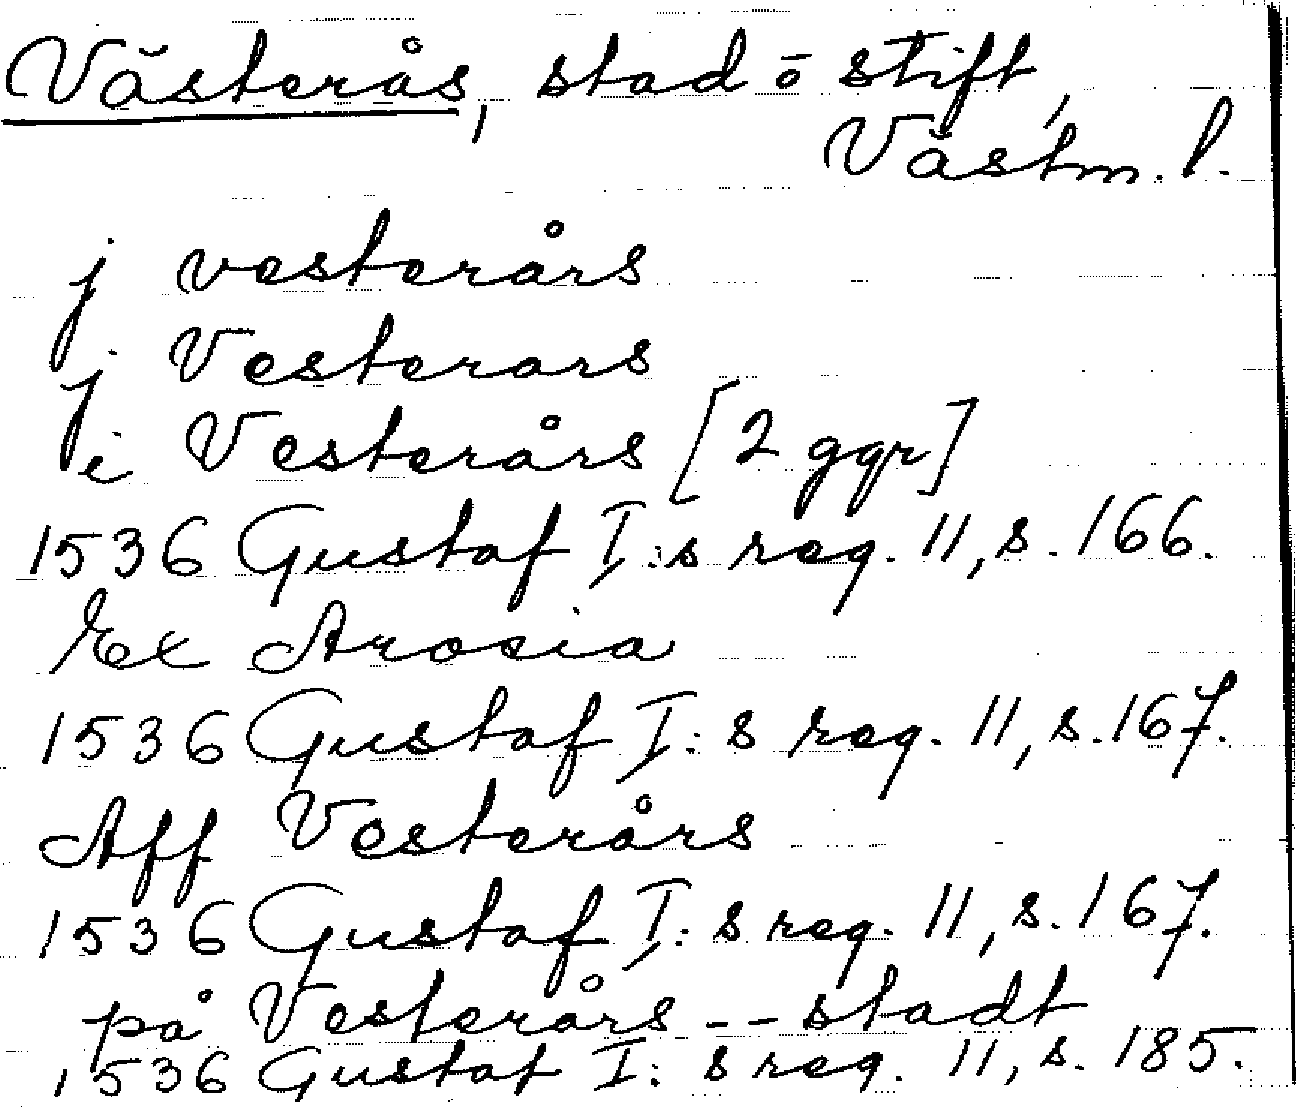 Västerås, stad o stift,
Västm. l.
j vesterårs
j Vesterars
i Vesterårs [2 ggr]
1536 Gustaf I:s reg. 11, s. 166.
Ex Arosia
1536 Gustaf I:s reg. 11, s. 167.
Aff Vesterårs
1536 Gustaf I:s reg. 11, s. 167.
på Vesterårs -- stadt
1536 Gustaf I:s reg. 11, s. 185.